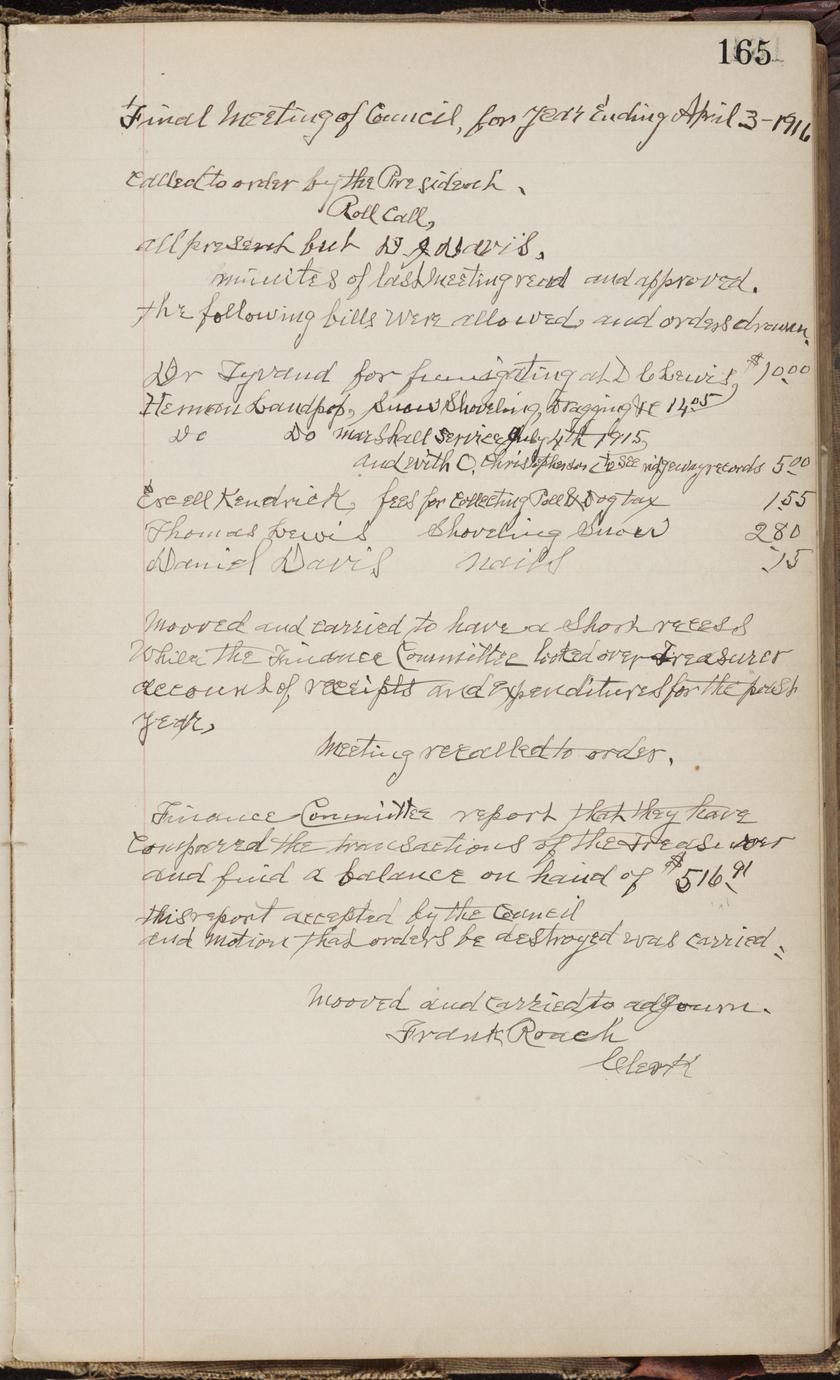 165
Final Meeting of Council, for Year Ending April 3-1916
Called to order by the President.
Roll Call,
all present but D J Davis.
minuites of last Meeting read and approved.
the following bills were allowed, and orders drawn.
Dr Tyvand for fumigating at D C Lewis, $10.00
Herman Landpop, Snow Shoveling, Dragging &c 14.05
Do Do marshall service July 4th 1915,
and with O. Christopherson to see ridgeway records 5.00
Excell Kendrick, fees for collecting Poll & Dog tax 1.55
Thomas Lewis Shoveling Snow 2 80
Daniel Davis nails .15
Mooved and carried to have a Short recess
While the Finance Committee looked over Treasurer
account of, receipts and expenditures for the past
year,
Meeting recalled to order.
Finance Committee report that they have
Compared the transactions of the Treasurer
and find a balance on hand of $516.91
this report accepted by the Council
and Motion that orders be destroyed was carried.
Mooved and carried to adjourn.
Frank Roach
Clerk